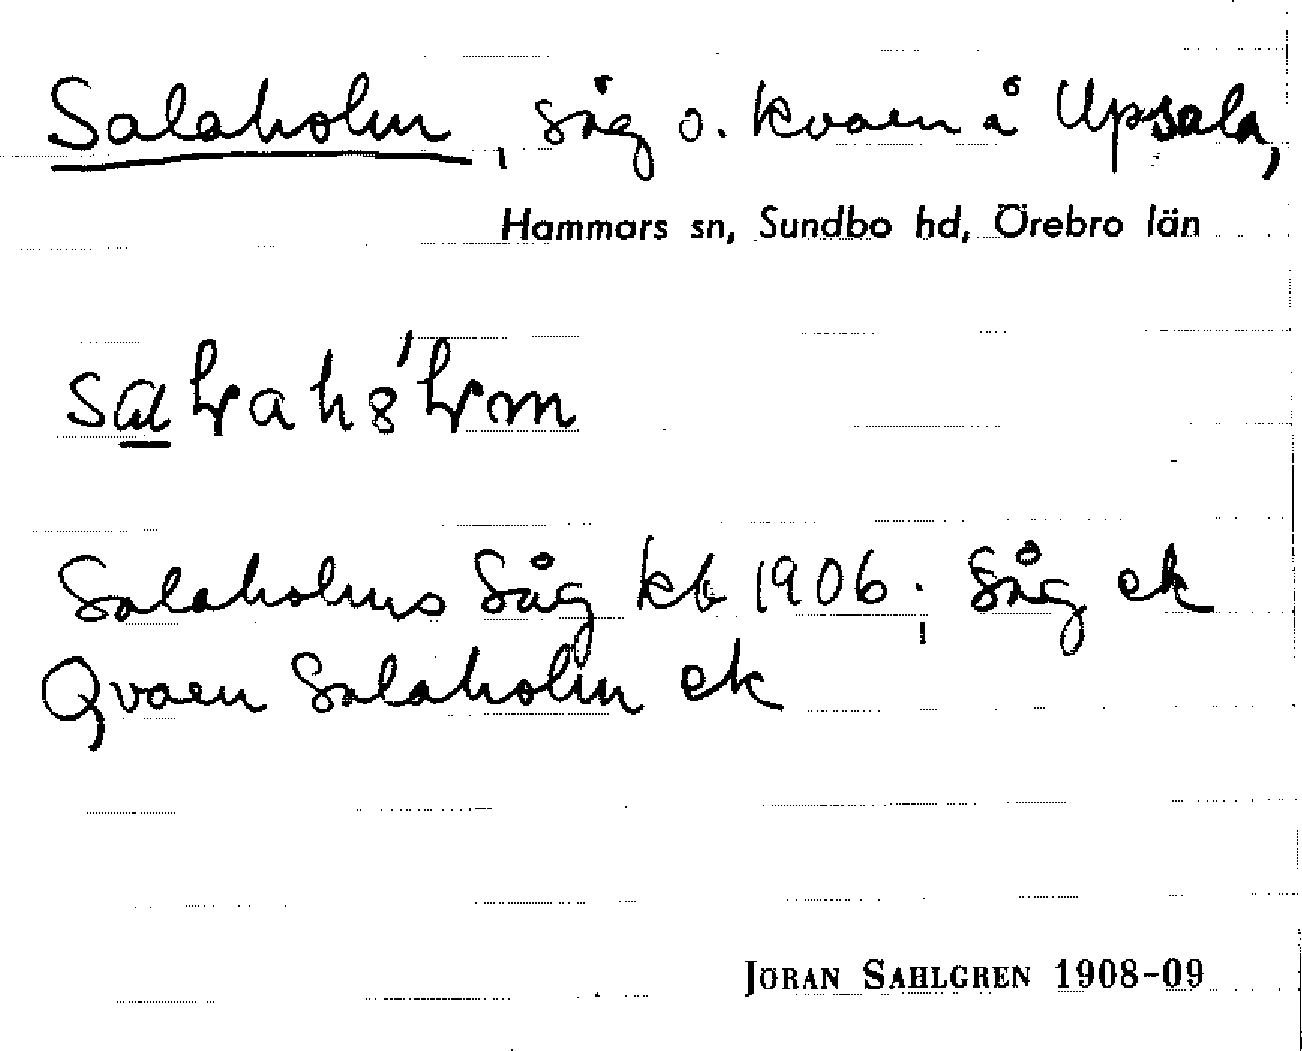 Salaholm, såg o. kvaen å Upsala,
Hammars sn, Sundbo hd, Örebro län
Salaholms Såg kb 1906; Såg ek
Qvaen Salaholm ek
JÖRAN SAHLGREN 1908-09